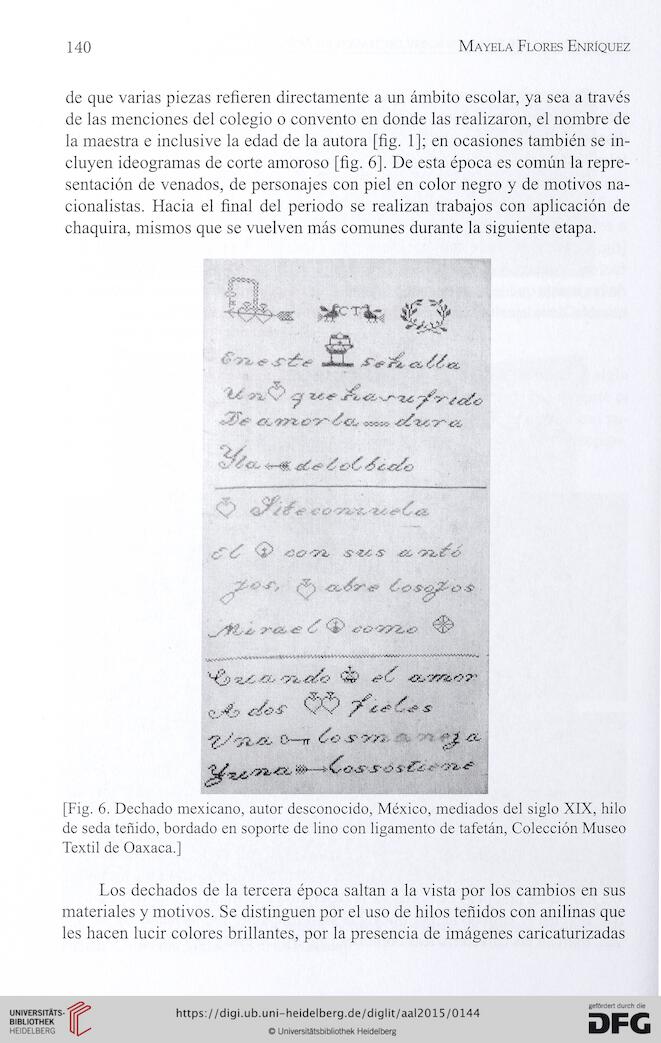 140
Mayela Flores Enríquez
de que varias piezas refieren directamente a un ámbito escolar, ya sea a través
de las menciones del colegio o convento en donde las realizaron, el nombre de
la maestra e inclusive la edad de la autora [fig. 1]; en ocasiones también se in-
cluyen ideogramas de corte amoroso [fig. 6]. De esta época es común la repre-
sentación de venados, de personajes con piel en color negro y de motivos na-
cionalistas. Hacia el final del periodo se realizan trabajos con aplicación de
chaquira, mismos que se vuelven más comunes durante la siguiente etapa.
CT
En este se halla
Un que ha sufrido
De amor la dura
Y la del olbido
Si te
El con sus anté
jos, abre los ojos
Mira el como
Cuando el amor
A dos fieles
Una los maneja
Y una los sostiene
[Fig. 6. Dechado mexicano, autor desconocido, México, mediados del siglo XIX, hilo
de seda teñido, bordado en soporte de lino con ligamento de tafetán, Colección Museo
Textil de Oaxaca.]
Los dechados de la tercera época saltan a la vista por los cambios en sus
materiales y motivos. Se distinguen por el uso de hilos teñidos con anilinas que
les hacen lucir colores brillantes, por la presencia de imágenes caricaturizadas
UNIVERSITÄTS-
BIBLIOTHEK
HEIDELBERG
https://digi.ub.uni-heidelberg.de/diglit/aal2015/0144
© Universitätsbibliothek Heidelberg
gefördert durch die
DFG